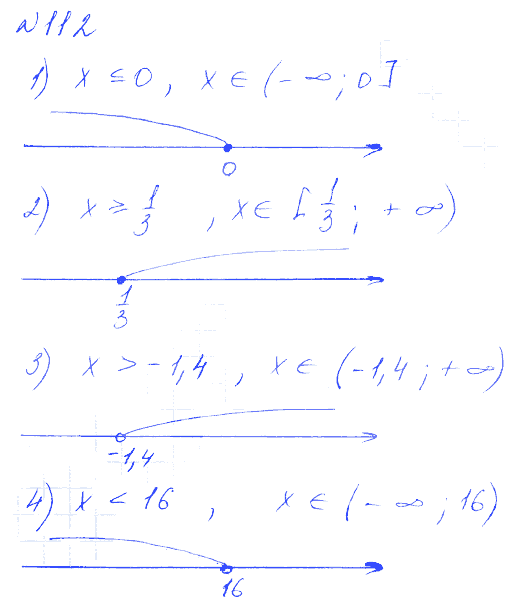 N112
1) x ≤ 0, x ∈ (-∞; 0]
0
2) x ≥ 1/3, x ∈ [1/3; +∞)
1/3
3) x > -1,4, x ∈ (-1,4; +∞)
-1,4
4) x < 16, x ∈ (-∞; 16)
16